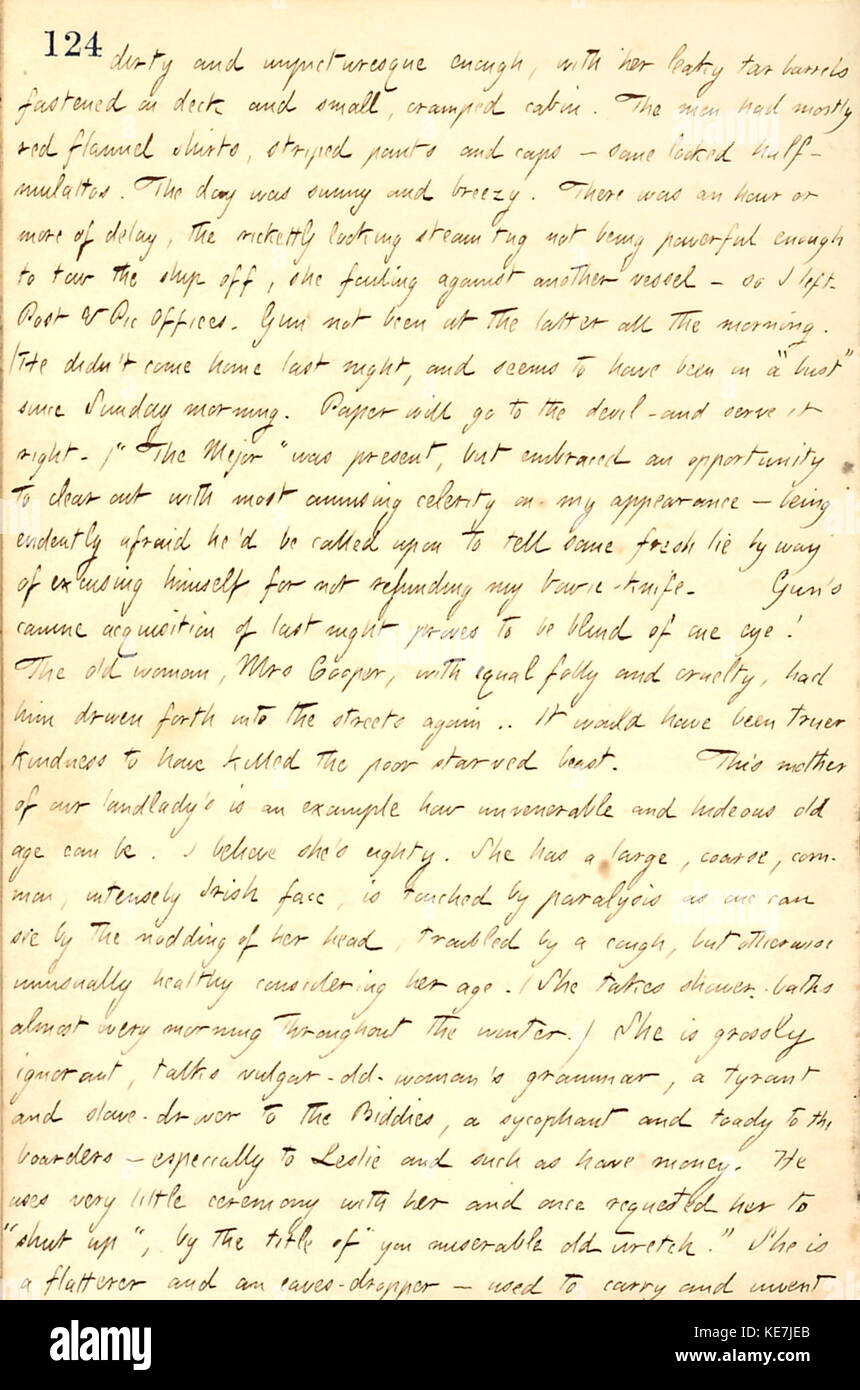 124
dirty and unpicturesque enough, with her leaky tar barrels
fastened on deck and small, cramped cabin. The men had mostly
red flannel shirts, striped pants and caps — some looked half-
mulattos. The day was sunny and breezy. There was an hour or
more of delay, the ricketty looking steam tug not being powerful enough
to tow the ship off, she fouling against another vessel — so I left.
Post & Pic Offices. Gun not been at the latter all the morning.
(He didn't come home last night, and seems to have been on a "bust"
since Sunday morning. Paper will go to the devil - and serve it
right.) "The Mejor" was present, but embraced an opportunity
to clear out with most amusing celerity on my appearance — being
evidently afraid he'd be called upon to tell some fresh lie by way
of excusing himself for not refunding my bowie-knife. Gun's
canine acquisition of last night proves to be blind of one eye!
The old woman, Mrs Cooper, with equal folly and cruelty, had
him driven forth into the streets again.. It would have been truer
kindness to have killed the poor starved beast. This mother
of our landlady's is an example how unvenerable and hideous old
age can be. I believe she's eighty. She has a large, coarse, com-
mon, intensely Irish face, is touched by paralysis as one can
see by the nodding of her head, troubled by a cough, but otherwise
unusually healthy considering her age. (She takes shower-baths
almost every morning throughout the winter.) She is grossly
ignorant, talks vulgar-old-woman's grammar, a tyrant
and slave-driver to the Biddies, a sycophant and toady to the
boarders — especially to Leslie and such as have money. He
uses very little ceremony with her and once requested her to
"shut up", by the title of "you miserable old wretch." She is
a flatterer and an eaves-dropper — used to carry and invent
alamy
Image ID: KE7JEB
www.alamy.com